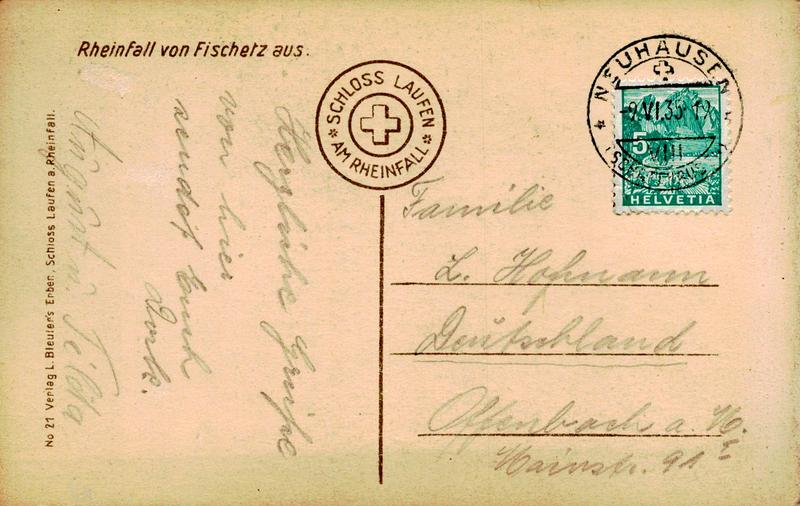 Rheinfall von Fischetz aus.
SCHLOSS LAUFEN
* AM RHEINFALL *
NEUHAUSEN
-9.VI.35-19
VIII
5
HELVETIA
Herzliche Grüße
von hier
sendet Euch
August u. Tilda
Familie
L. Hofmann
Deutschland
Offenbach a. M.
Mainstr. 91
No 21 Verlag L. Bleuler's Erben, Schloss Laufen a. Rheinfall.